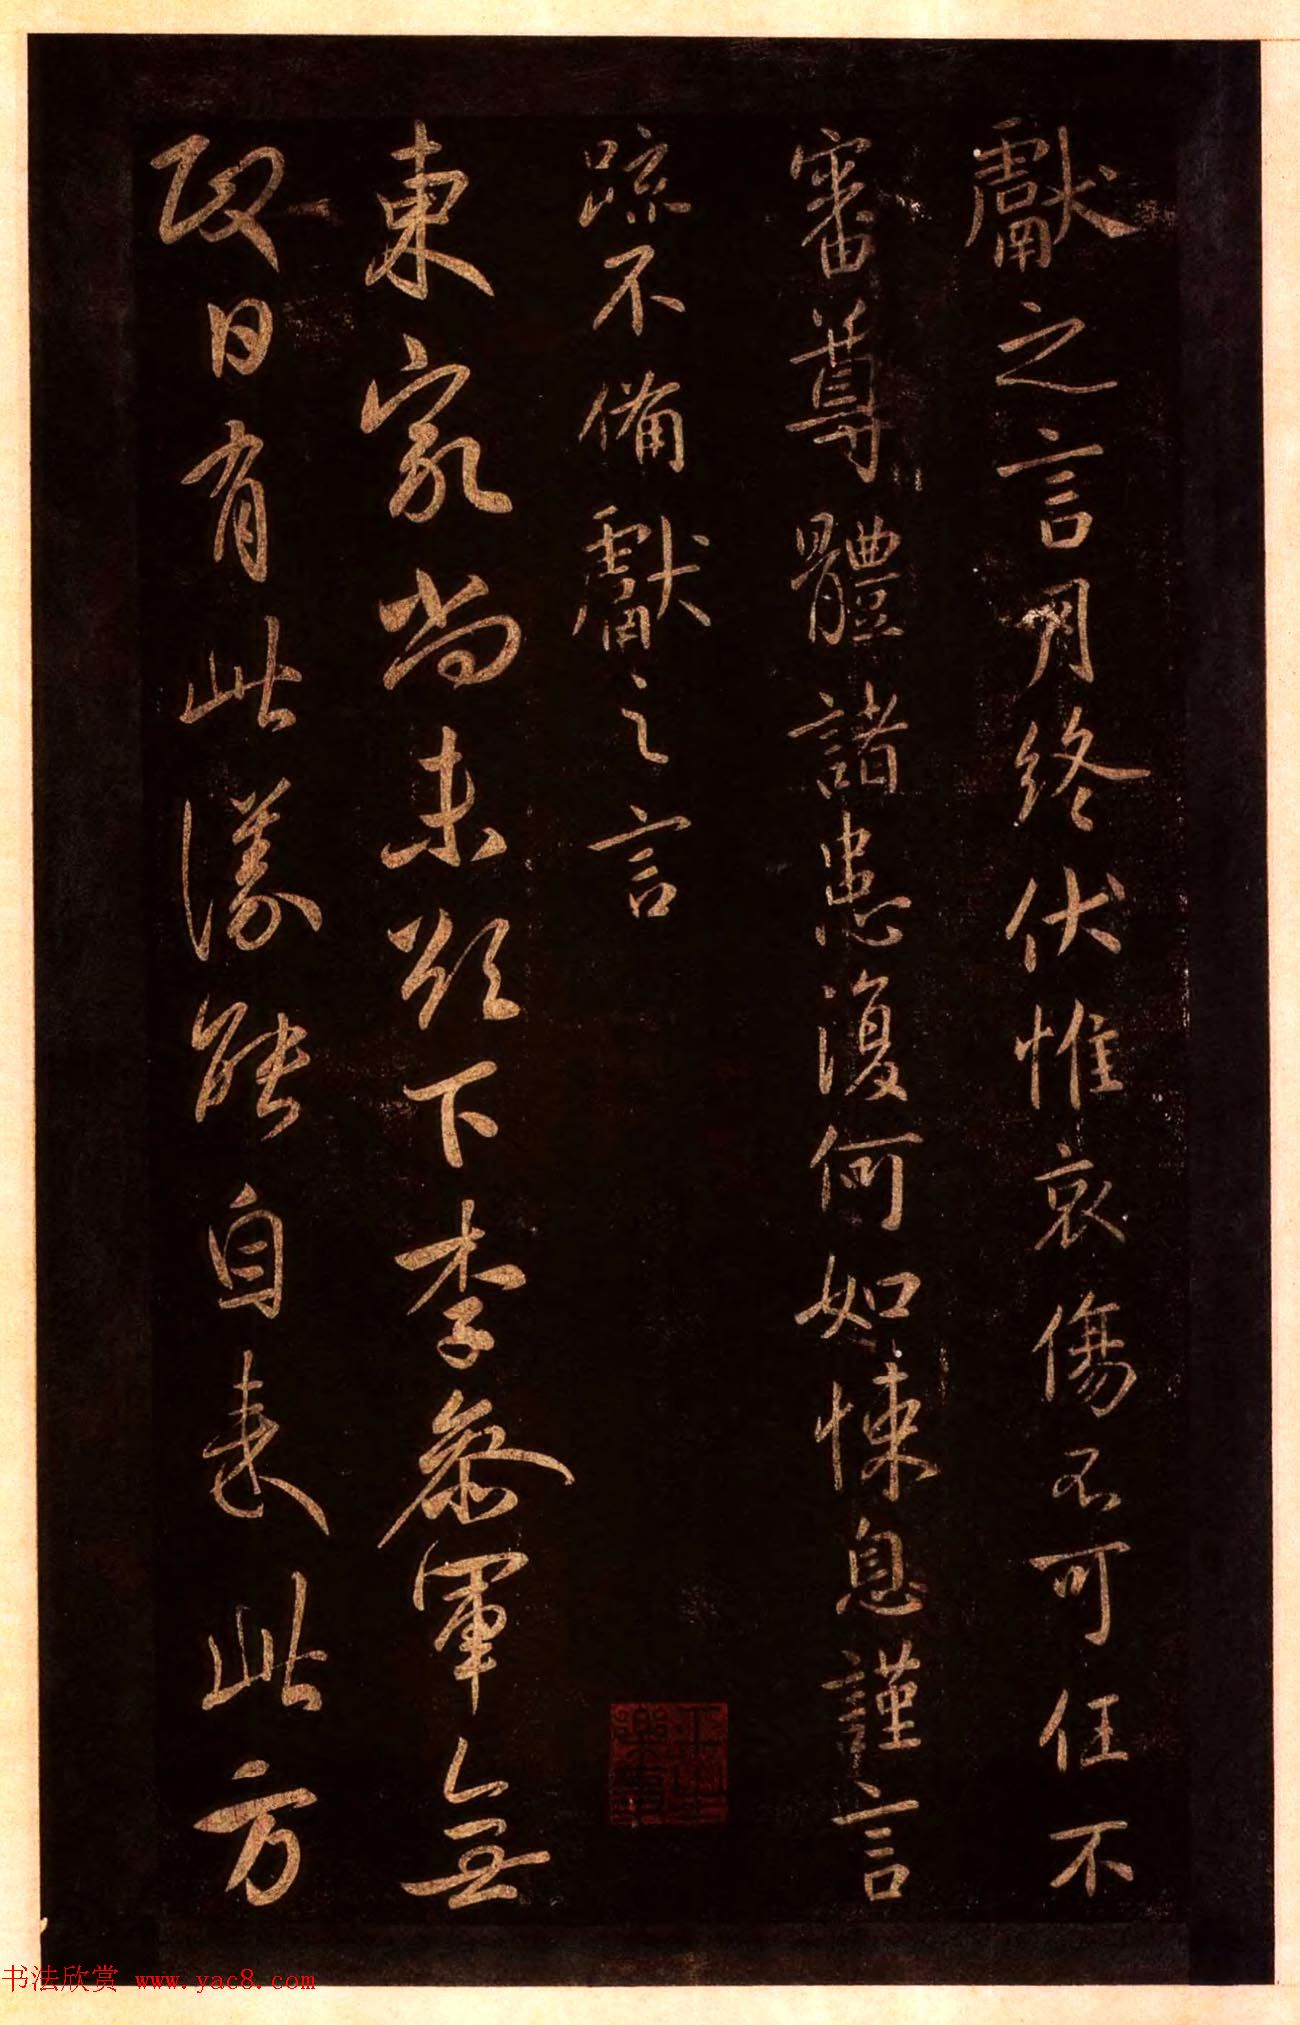 獻之言月終伏惟哀傷不可任不
審尊體諸患復何如悚息謹言
踈不備獻之言
東家尚未下李參軍無
日有此議能自表此方
平生樂事
书法欣赏 www.yac8.com